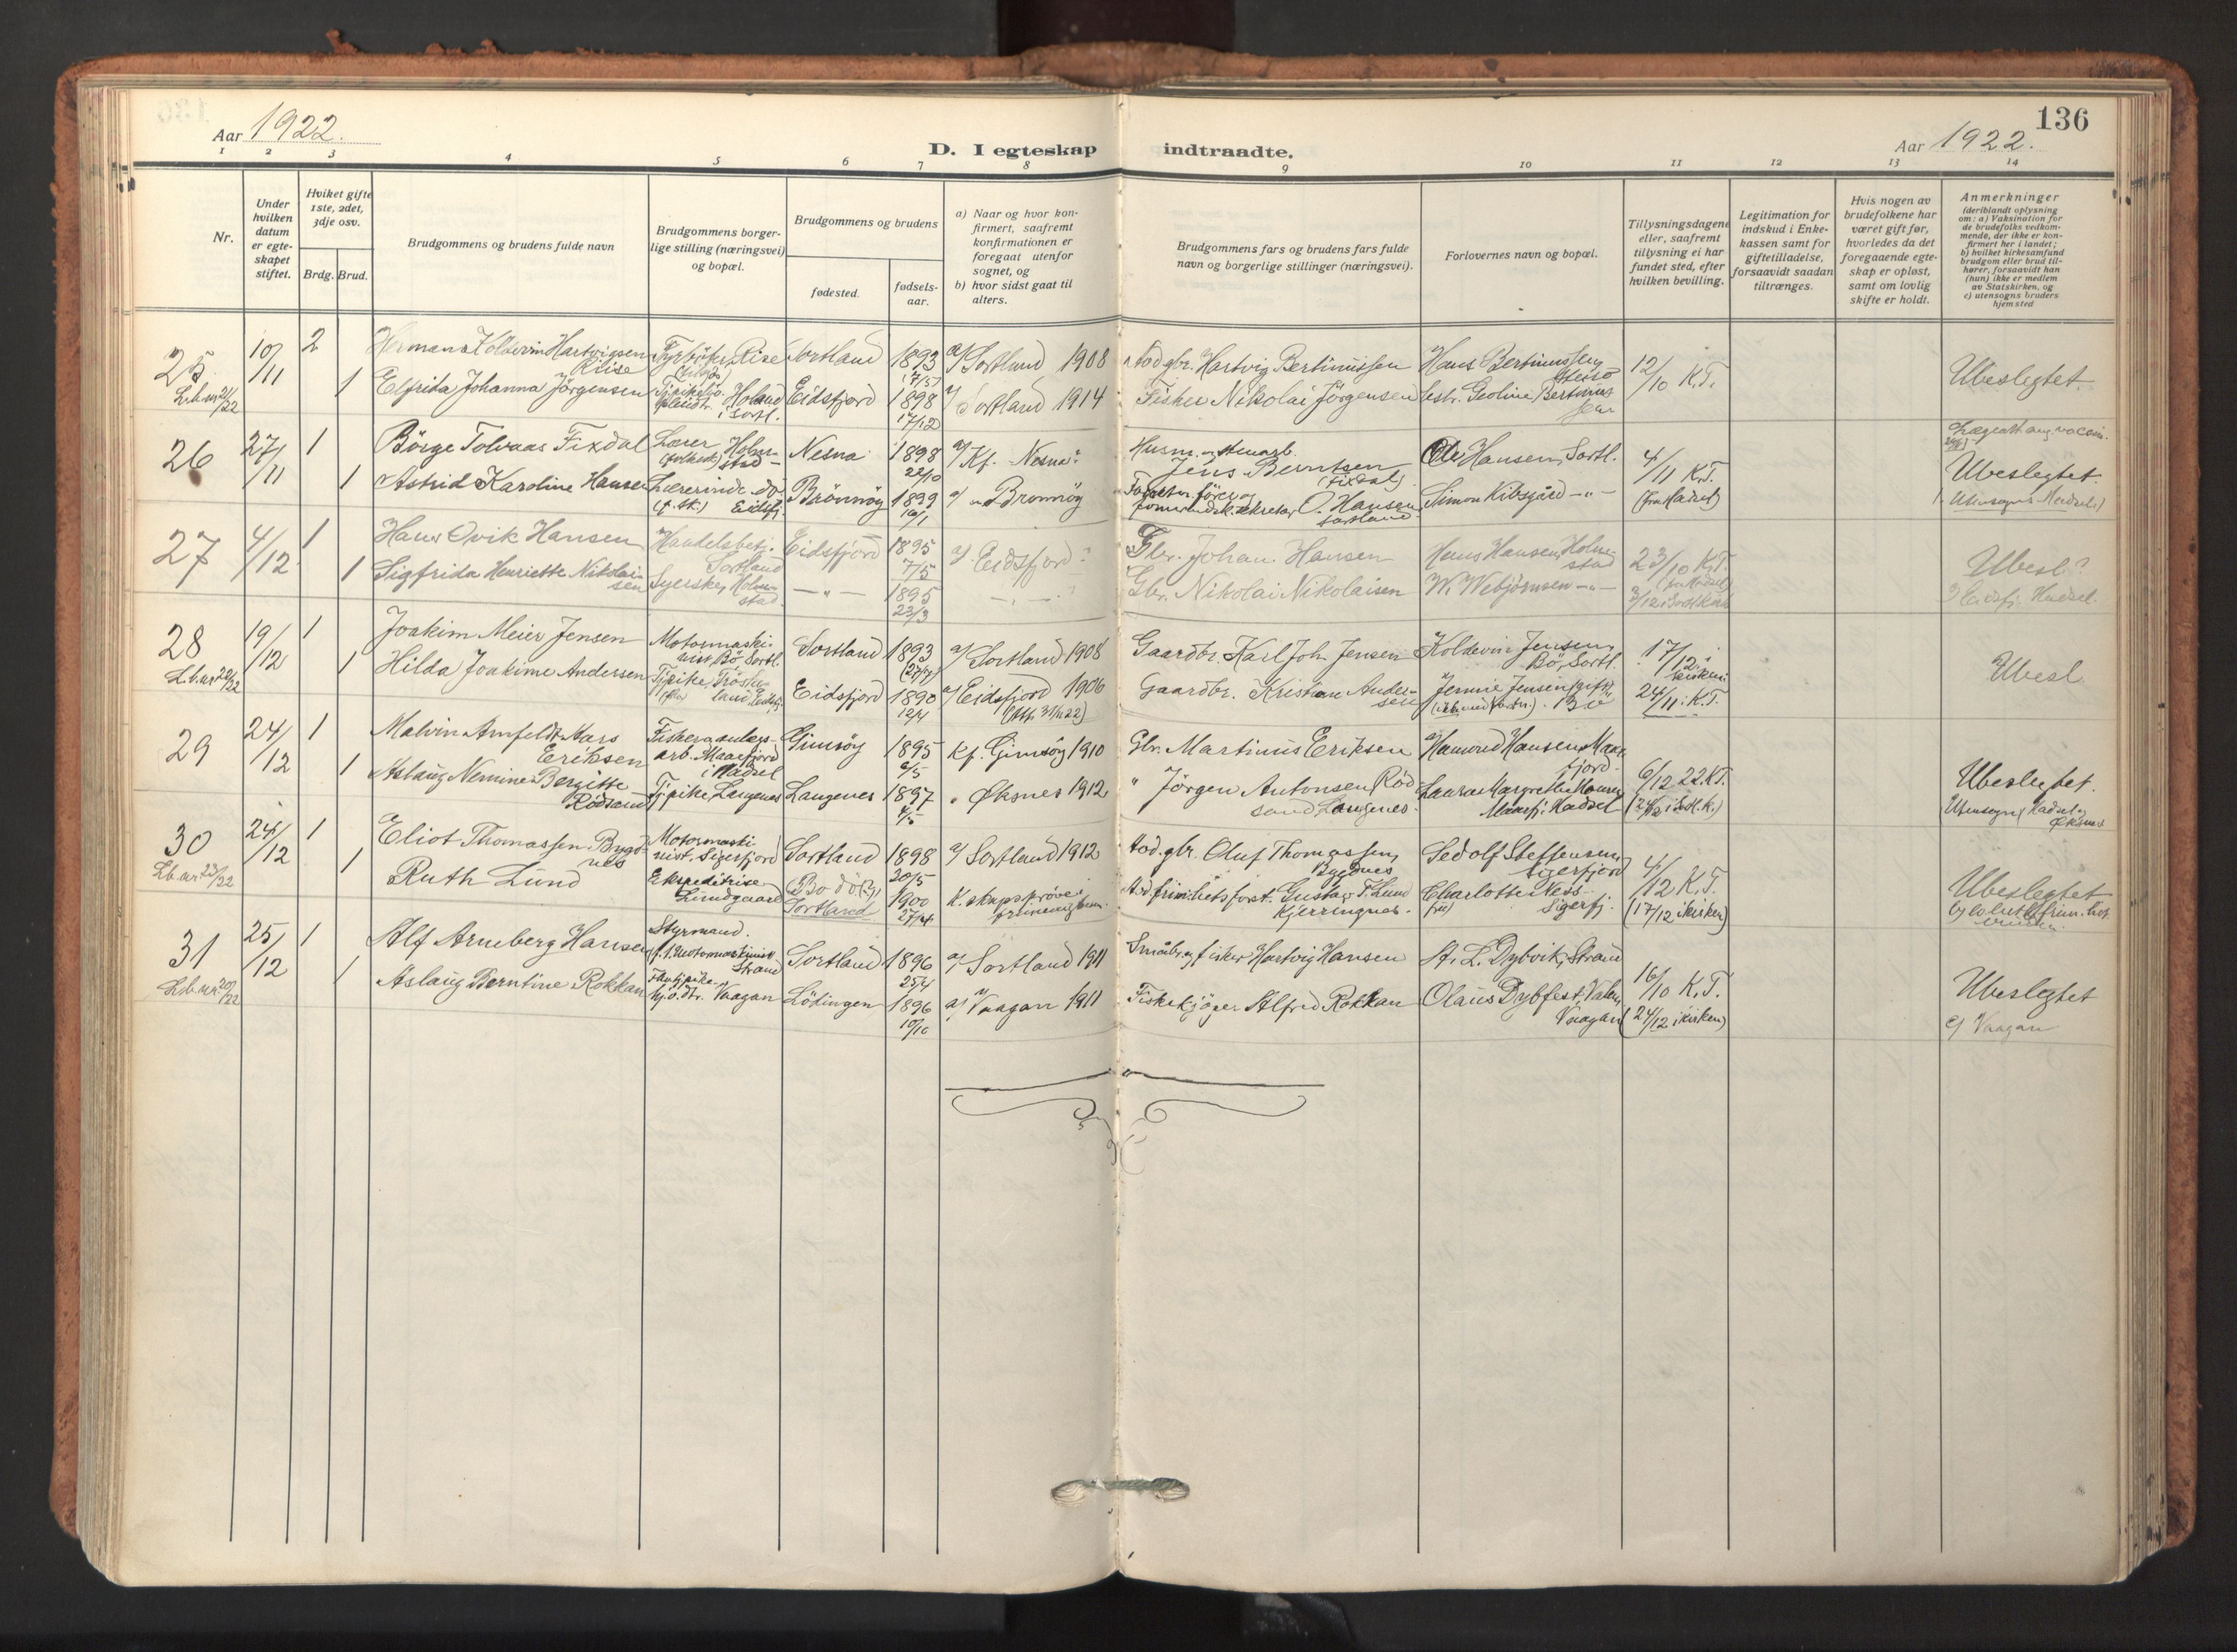 136
Aar 1922.
Aar 1922.
D. I egteskap indtraadte.
1 2 3 4 5 6 7 8 9 10 11 12 13 14
Nr.
Under hvilken datum er egteskapet stiftet.
Hvilket gifte 1ste, 2det, 3dje osv.
Brdg. Brud.
Brudgommens og brudens fulde navn
Brudgommens borgerlige stilling (næringsvei) og bopæl.
Brudgommens og brudens
fødested.
fødselsaar.
a) Naar og hvor konfirmert, saafremt konfirmationen er foregaat utenfor sognet, og
b) hvor sidst gaat til alters.
Brudgommens fars og brudens fars fulde navn og borgerlige stillinger (næringsvei).
Forlovernes navn og bopæl.
Tillysningsdagene eller, saafremt tillysning ei har fundet sted, efter hvilken bevilling.
Legitimation for indskud i Enkekassen samt for giftetilladelse, forsaavidt saadan tiltrænges.
Hvis nogen av brudefolkene har været gift før, hvorledes da det foregaaende egteskap er opløst, samt om lovlig skifte er holdt.
Anmerkninger
(deriblandt oplysning om: a) Vaksination for de brudefolks vedkommende, der ikke er konfirmert her i landet; b) hvilket kirkesamfund brudgom eller brud tilhører, forsaavidt han (hun) ikke er medlem av Statskirken, og c) utensogns bruders hjemsted
25 10/11 2 Hermans Koldevin Hartvigsen Sortland 1893 a/ Sortland 1908 Hartvig Bertinussen Hans Bertinussen 12/10 K.T. Ubeslegtet.
Lb. nr. 21/22 1 Elfrida Johanna Jörgensen Holand i Sortl. Eidsfjord 1898 17/12 a/ Sortland 1914 Fisker Nikolai Jörgensen Geoline Bertinussen
26 27/11 1 Börge Tolvaas Fixdal Lærer Holmstad Nesna 1898 22/10 a/ Kf. Nesna? Jens Berntsen (Fixdal) Hansen, Sortl. 4/11 K.T. Ubeslegtet.
1 Astrid Karoline Hansen Lærerinde do. Eidsfj. Brönnöy 1899 a/ Brönnöy O. Hansen Sortland Simon Kibsgård -"- (fra Hadsel)
27 4/12 1 Hans Ovik Hansen Handelsbetj. Sortland Eidsfjord 1895 7/5 a/ Eidsfjord? Gbr. Johan Hansen Hans Hansen, Holmstad 23/10 K.T. Ubesl?
1 Sigfrida Henriette Nikolaisen Syerske, Holmstad -"- 1895 23/3 -"-? Gbr. Nikolai Nikolaisen W. Webjörnsen -"-
28 19/12 1 Joakim Meier Jensen Motormaskinist, Bö, Sortl. Sortland 1893 a/ Sortland 1908 Gaardbr. Karl Joh. Jensen Koldevin Jensen, Bö, Sortl. 17/12 i kirken Ubesl.
Lb. nr. 22/22 1 Hilda Joakime Andersen Eidsfjord 1890 12/4 a/ Eidsfjord 1906 Gaardbr. Kristian Andersen Jennie Jensen Bö 24/11 K.T.
29 24/12 1 Malvin Arnfeldt Mars Eriksen Maasfjord i Hadsel Gimsöy 1895 6/5 Kf. Gimsöy 1910 Gbr. Martinus Eriksen Hansen Maasfjord 6/12 22 K.T. Ubeslegtet.
1 Aslaug Nemine Bergitte Rödsand Tj.pike, Langenes Langenes 1897 " Øksnes 1912 " Jörgen Antonsen Rödsand Langenes. Laura Margrethe Hansen Maasfj. Hadsel Utensogns Hadsel og Øksnes
30 24/12 1 Eliot Thomassen Bygdnes Motormaskinist, Sigerfjord Sortland 1898 20/5 a/ Sortland 1912 Oluf Thomassen, Bygdnes Sedolf Steffensen Sigerfjord 4/12 K.T. Ubeslegtet
Lb. nr. 23/22 1 Ruth Lund Ekspeditrise Lundgaard Bodö (By) Sortland 1900 27/4 Gustav T. Lund Kjerringnes. Charlotte Ness Sigerfj. (17/12 i kirken)
31 25/12 1 Alf Arneberg Hansen Styrmand. Strand Sortland 1896 25/4 a/ Sortland 1911 Småbr. og fisker Hartvig Hansen L. Dybvik, Strand 16/10 K.T. Ubeslegtet
Lb. nr. 20/22 1 Aslaug Berntine Rokkan Vaagan Lödingen 1896 10/10 a/ Vaagan 1911 Fiskekjöper Alfred Rokkan Olaus Dybfest, Vaagan (24/12 i kirken) c/ Vaagan